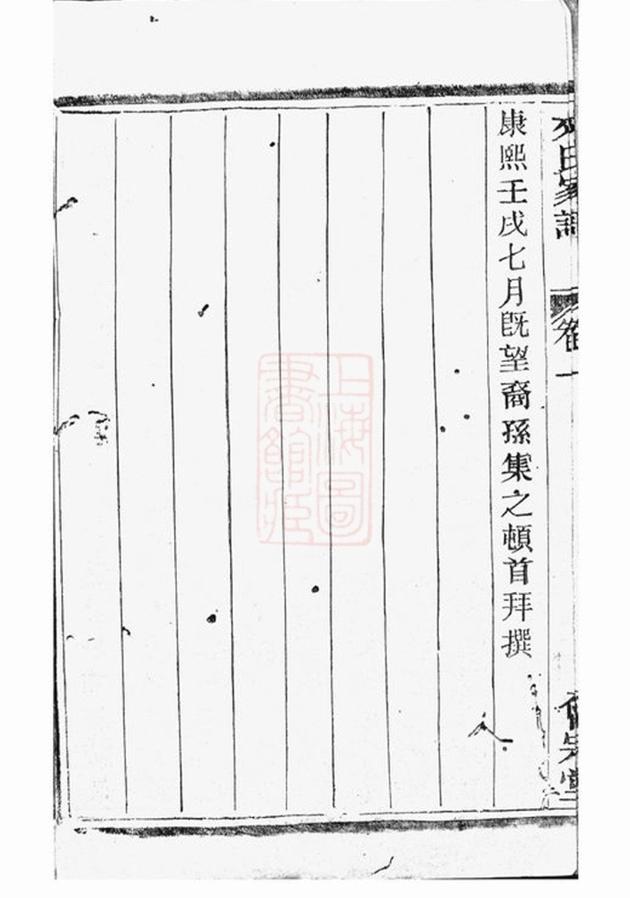 氏家譜
卷一
堂
康熙壬戌七月既望裔孫集之頓首拜撰
上海圖書館藏